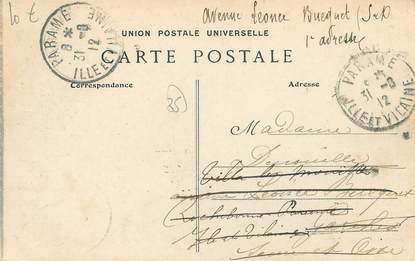 10 €
avenue Leonce Bucquet (S&O
1e adresse
UNION POSTALE UNIVERSELLE
CARTE POSTALE
Correspondance
Adresse
PARAMÉ
8 *
31 -8
12
ILLE ET VILAINE
PARAMÉ
31 -8
12
ILLE ET VILAINE
35
Madame
Villa les
avenue Leonce Bucquet
Rochebonne Paramé
Ille et Vilaine
Seine et Oise